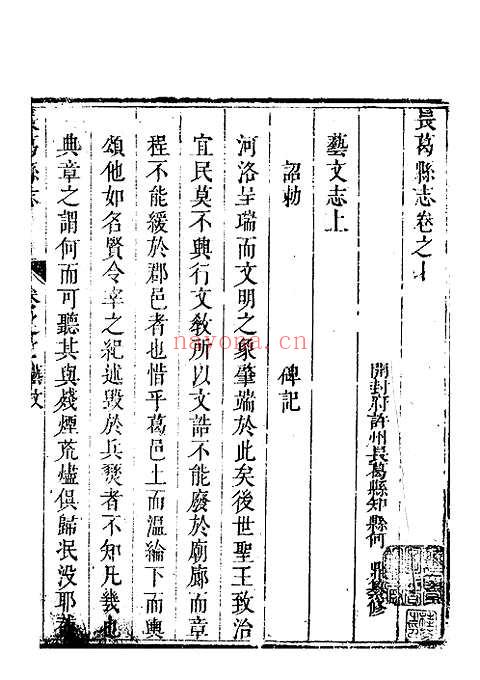 長葛縣志卷之
開封府許州長葛縣知縣何 鼎纂修
藝文志上
詔勅 碑記
河洛呈瑞而文明之象肇端於此矣後世聖王致治
宜民莫不興行文敎所以文誥不能廢於廟廊而章
程不能緩於郡邑者也惜乎葛邑上而溫綸下而輿
頌他如名賢令宰之紀述毀於兵燹者不知凡幾也
典章之謂何而可聽其與殘煙荒燼俱歸泯没耶
長葛縣志
藝文
nayona.cn